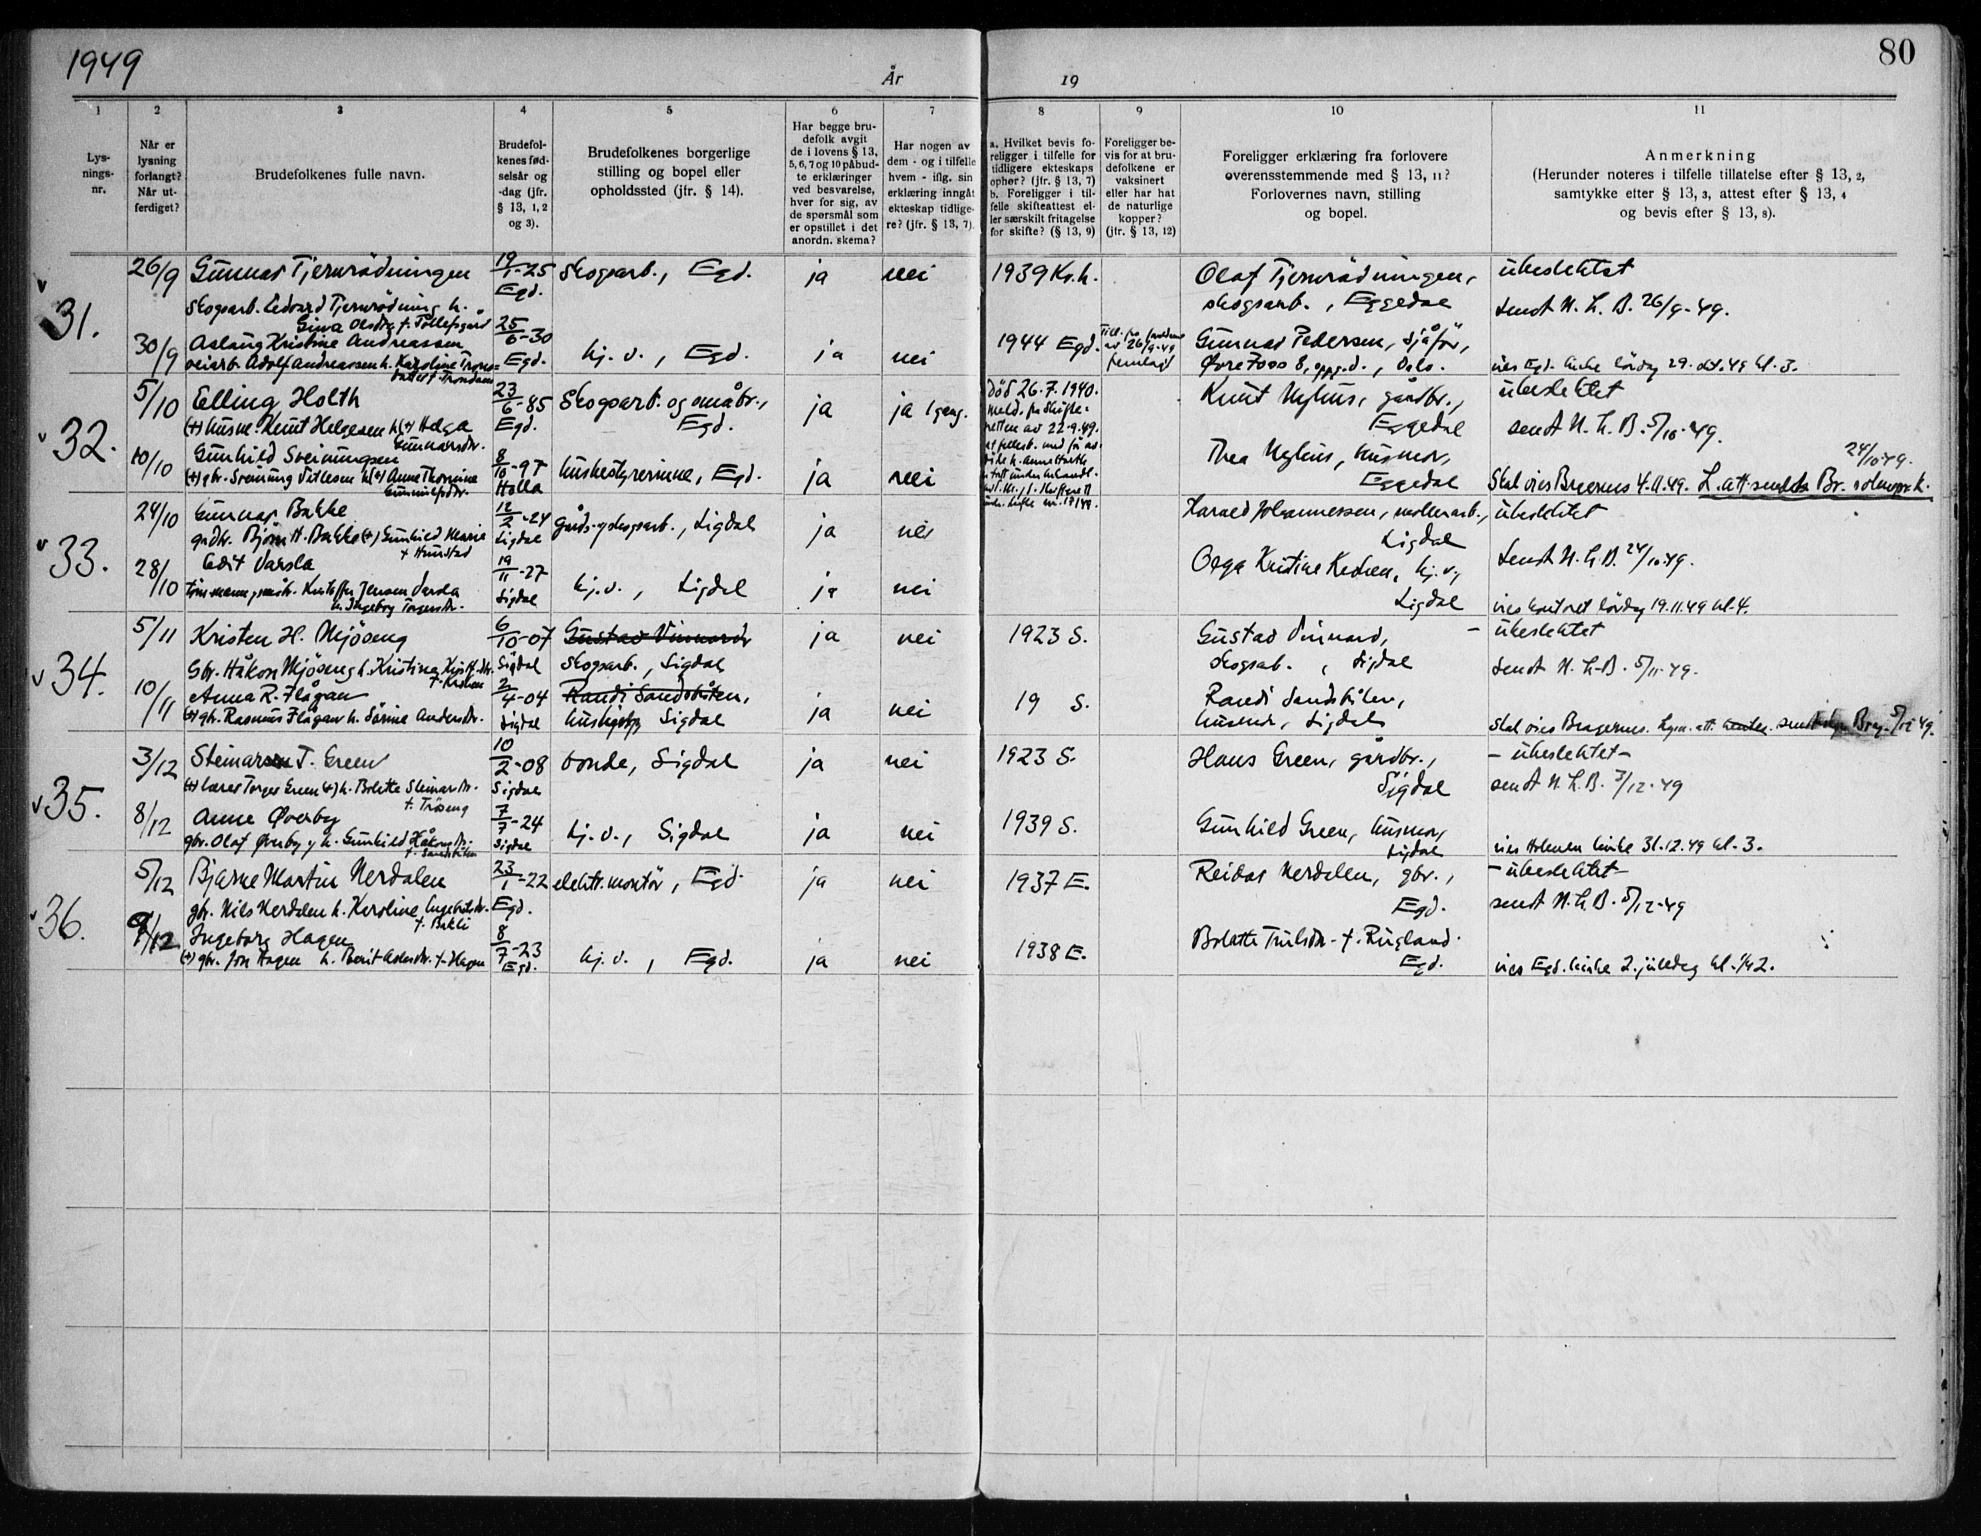 1949
År
19
80
1
2
3
4
5
6
7
8
9
10
11
Lys-
nings-
nr.
Når er
lysning
forlangt?
Når ut-
ferdiget?
Brudefolkenes fulle navn.
Brudefol-
kenes fød-
selsår og
-dag (jfr.
§ 13, 1, 2
og 3).
Brudefolkenes borgerlige
stilling og bopel eller
opholdssted (jfr. § 14).
Har begge bru-
defolk avgit
de i lovens § 13,
5, 6, 7 og 10 påbud-
te erklæringer
ved besvarelse,
hver for sig, av
de spørsmål som
er opstillet i det
anordn. skema?
Har nogen av
dem - og i tilfelle
hvem - iflg. sin
erklæring inngått
ekteskap tidlige-
re? (jfr. § 13, 7).
a. Hvilket bevis fo-
religger i tilfelle for
tidligere ekteskaps
ophør? (jfr. § 13, 7)
b. Foreligger i til-
felle skifteattest el-
ler særskilt fritagelse
for skifte? (§ 13, 9)
Foreligger be-
vis for at bru-
defolkene er
vaksinert
eller har hat
de naturlige
kopper?
(jfr. § 13, 12)
Foreligger erklæring fra forlovere
overensstemmende med § 13, 11?
Forlovernes navn, stilling
og bopel.
Anmerkning
(Herunder noteres i tilfelle tillatelse efter § 13, 2,
samtykke efter § 13, 3, attest efter § 13, 4
og bevis efter § 13, 8).
31.
26/9 Gunnar Tjernrödningen 19/1-25 Skogsarb., Egd. ja nei 1939 Kr.h. Olaf Tjernrödningen, ubeslektet
Egd.
skogsarb. Edvard Tjernrödning h. skogsarb., Eggedal sendt N. L. B. 26/9-49.
Gina Olsdtr. f. Tollefsgård
30/9 Aslaug Kristine Andreassen 25/6-30 hj. v., Egd. ja nei 1944 Egd. Gunnar Pedersen, sjåför,
veiarb. Adolf Andreassen h. Karoline Trons- Egd. av 26/9-49 Øvre Foss 8, oppg. d., Oslo. vies Egd. kirke lördag 29. okt. 49 kl. 3.
datter f. Trondsen
32.
5/10 Elling Holth 23/6-85 Skogsarb. og småbr., ja ja 1 gang. död 26.7.1940. Knut Nyhus, gårdbr., ubeslektet
(+) husm. Knut Helgesen h. (+) Helga Egd. Egd. meld. fra skifte- Eggedal sendt N. L. B. 5/10-49.
Gunnarsdtr. retten av 22-9.49.
10/10 Gunhild Sveinungsen 8/10-97 husbestyrerinne, Egd. ja nei Thea Nyhus, husmor, 24/10-49.
(+) gbr. Sveinung Vetlesen h. (+) Anne Thomine Holla Eggedal Skal vies Bragernes 4.11.49. L. att. sendt Br. soknepr.k.
33.
24/10 Gunnar Bakke 12/2-24 gårds- og skogsarb., Sigdal ja nei Harald Johannessen, møllerarb., ubeslektet
grdbr. Björn H. Bakke (+) Gunhild Marie Sigdal Sigdal
f. Hunstad
28/10 Edit Varsla 19/11-27 hj. v., Sigdal ja nei Olga Kristine Kesten, hj. v., sendt N. L. B. 24/10-49.
tömmermannsmstr. Kristoffer Jensen Varsla Sigdal Sigdal vies kontoret lördag 19.11.49 kl. 4.
h. Ingeborg Torgersdtr.
34.
5/11 Kristen H. Mjöseng 6/10-07 Gustav Vinnard ja nei 1923 S. Gustav Vinnard, - ubeslektet
Gbr. Håkon Mjöseng h. Kristine Krist.dtr. Sigdal Skogsarb., Sigdal skogsarb., Sigdal sendt N. L. B. 5/11-49.
10/11 Anna R. Flågan 2/4-04 Randi Sandsbråten, ja nei 19 S. Randi Sandsbråten,
(+) gbr. Rasmus Flågan h. Sörine Andersdtr. Sigdal Sigdal husmor, Sigdal Skal vies Bragernes. Lysn. att. sendt Brag. 5/12 49.
35.
3/12 Steinar T. Green 10/2-08 bonde, Sigdal ja nei 1923 S. Hans Green, gårdbr., - ubeslektet -
(+) lærer Torger Green (+) h. Bolette Steinarsdtr. Sigdal Sigdal sendt N. L. B. 3/12-49
f. Tröseng
8/12 Anne Øverby 7/7-24 hj. v., Sigdal ja nei 1939 S. Gunhild Green, husmor,
gbr. Olaf Øverby og h. Gunhild Håkonsdtr. Sigdal Sigdal vies Holmen kirke 31.12.49 kl. 3.
36.
5/12 Bjarne Martin Nerdalen 23/1-22 elektr. montör, Egd. ja nei 1937 E. Reidar Nerdalen, gbr., - ubeslektet -
gbr. Nils Nerdalen h. Karoline Engebretsdtr. Egd. Egd. sendt N. L. B. 5/12-49
f. Bakli
9/12 Ingeborg Hagen 8/7-23 hj. v., Egd. ja nei 1938 E. Bolette Trulsdtr. f. Rugland
(+) gbr. Jon Hagen h. Berit Aslesdtr. f. Hagen Egd. Egd. vies Egd. kirke 2. juledag kl. 1/2 2.